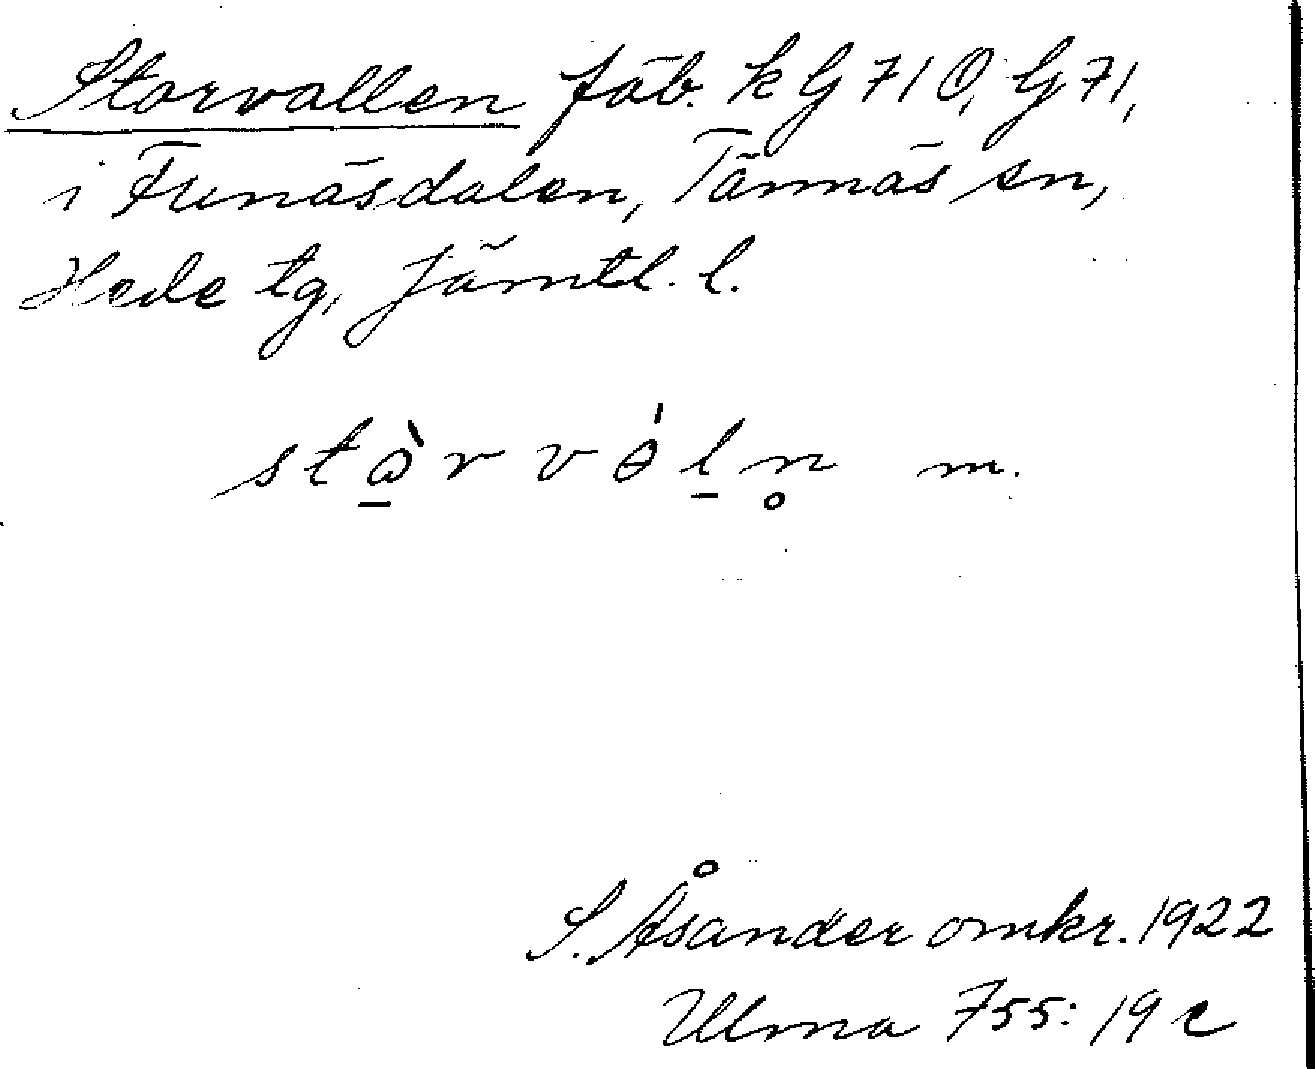 Storvallen fäb. k G 71 O, G 71,
i Funäsdalen, Tännäs sn,
Hede tg, Jämtl. l.
stɷ̠̀rvɵ́l̠n̥ m.
S. Åsander omkr. 1922
Ulma 755: 19 c